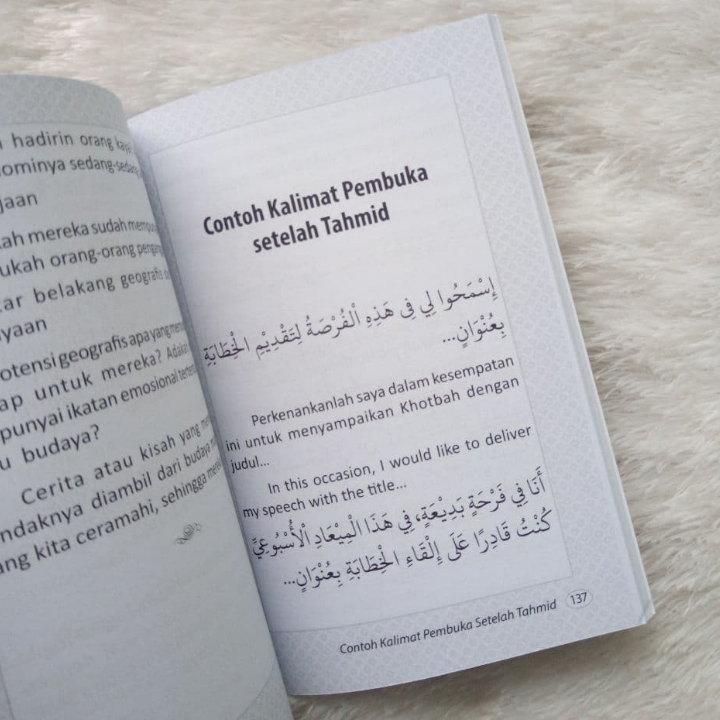 hadirin orang
ominya sedang-sedang
jaan
ah mereka sudah
ukah orang-orang
ar belakang geografis
yaan
otensi geografis apa yang
ap untuk mereka? Adakah
punyai ikatan emosional
u budaya?
Cerita atau kisah yang
ndaknya diambil dari budaya
ang kita ceramahi, sehingga
Contoh Kalimat Pembuka
setelah Tahmid
إِسْمَحُوا لِي فِي هَذِهِ الْفُرْصَةُ لِتَقْدِيْمِ الْخِطَابَةِ
بِعُنْوَانٍ...
Perkenankanlah saya dalam kesempatan
ini untuk menyampaikan Khotbah dengan
judul...
In this occasion, I would like to deliver
my speech with the title...
أَنَا فِي فَرْحَةٍ بَدِيْعَةٍ، فِي هَذَا الْمِيْعَادِ الْأُسْبُوْعِيِّ
كُنْتُ قَادِرًا عَلَى إِلْقَاءِ الْخِطَابَةِ بِعُنْوَانٍ...
Contoh Kalimat Pembuka Setelah Tahmid 137